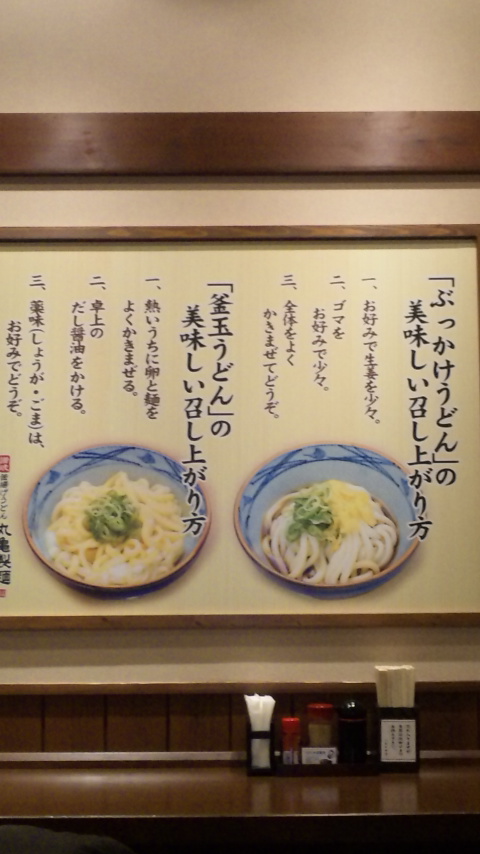 「ぶっかけうどん」の
美味しい召し上がり方
一、お好みで生姜を少々。
二、ゴマを
お好みで少々。
三、全体をよく
かきまぜてどうぞ。
「釜玉うどん」の
美味しい召し上がり方
一、熱いうちに卵と麺を
よくかきまぜる。
二、卓上の
だし醤油をかける。
三、薬味(しょうが・ごま)は、
お好みでどうぞ。
讃岐
釜揚げうどん
丸亀製麺